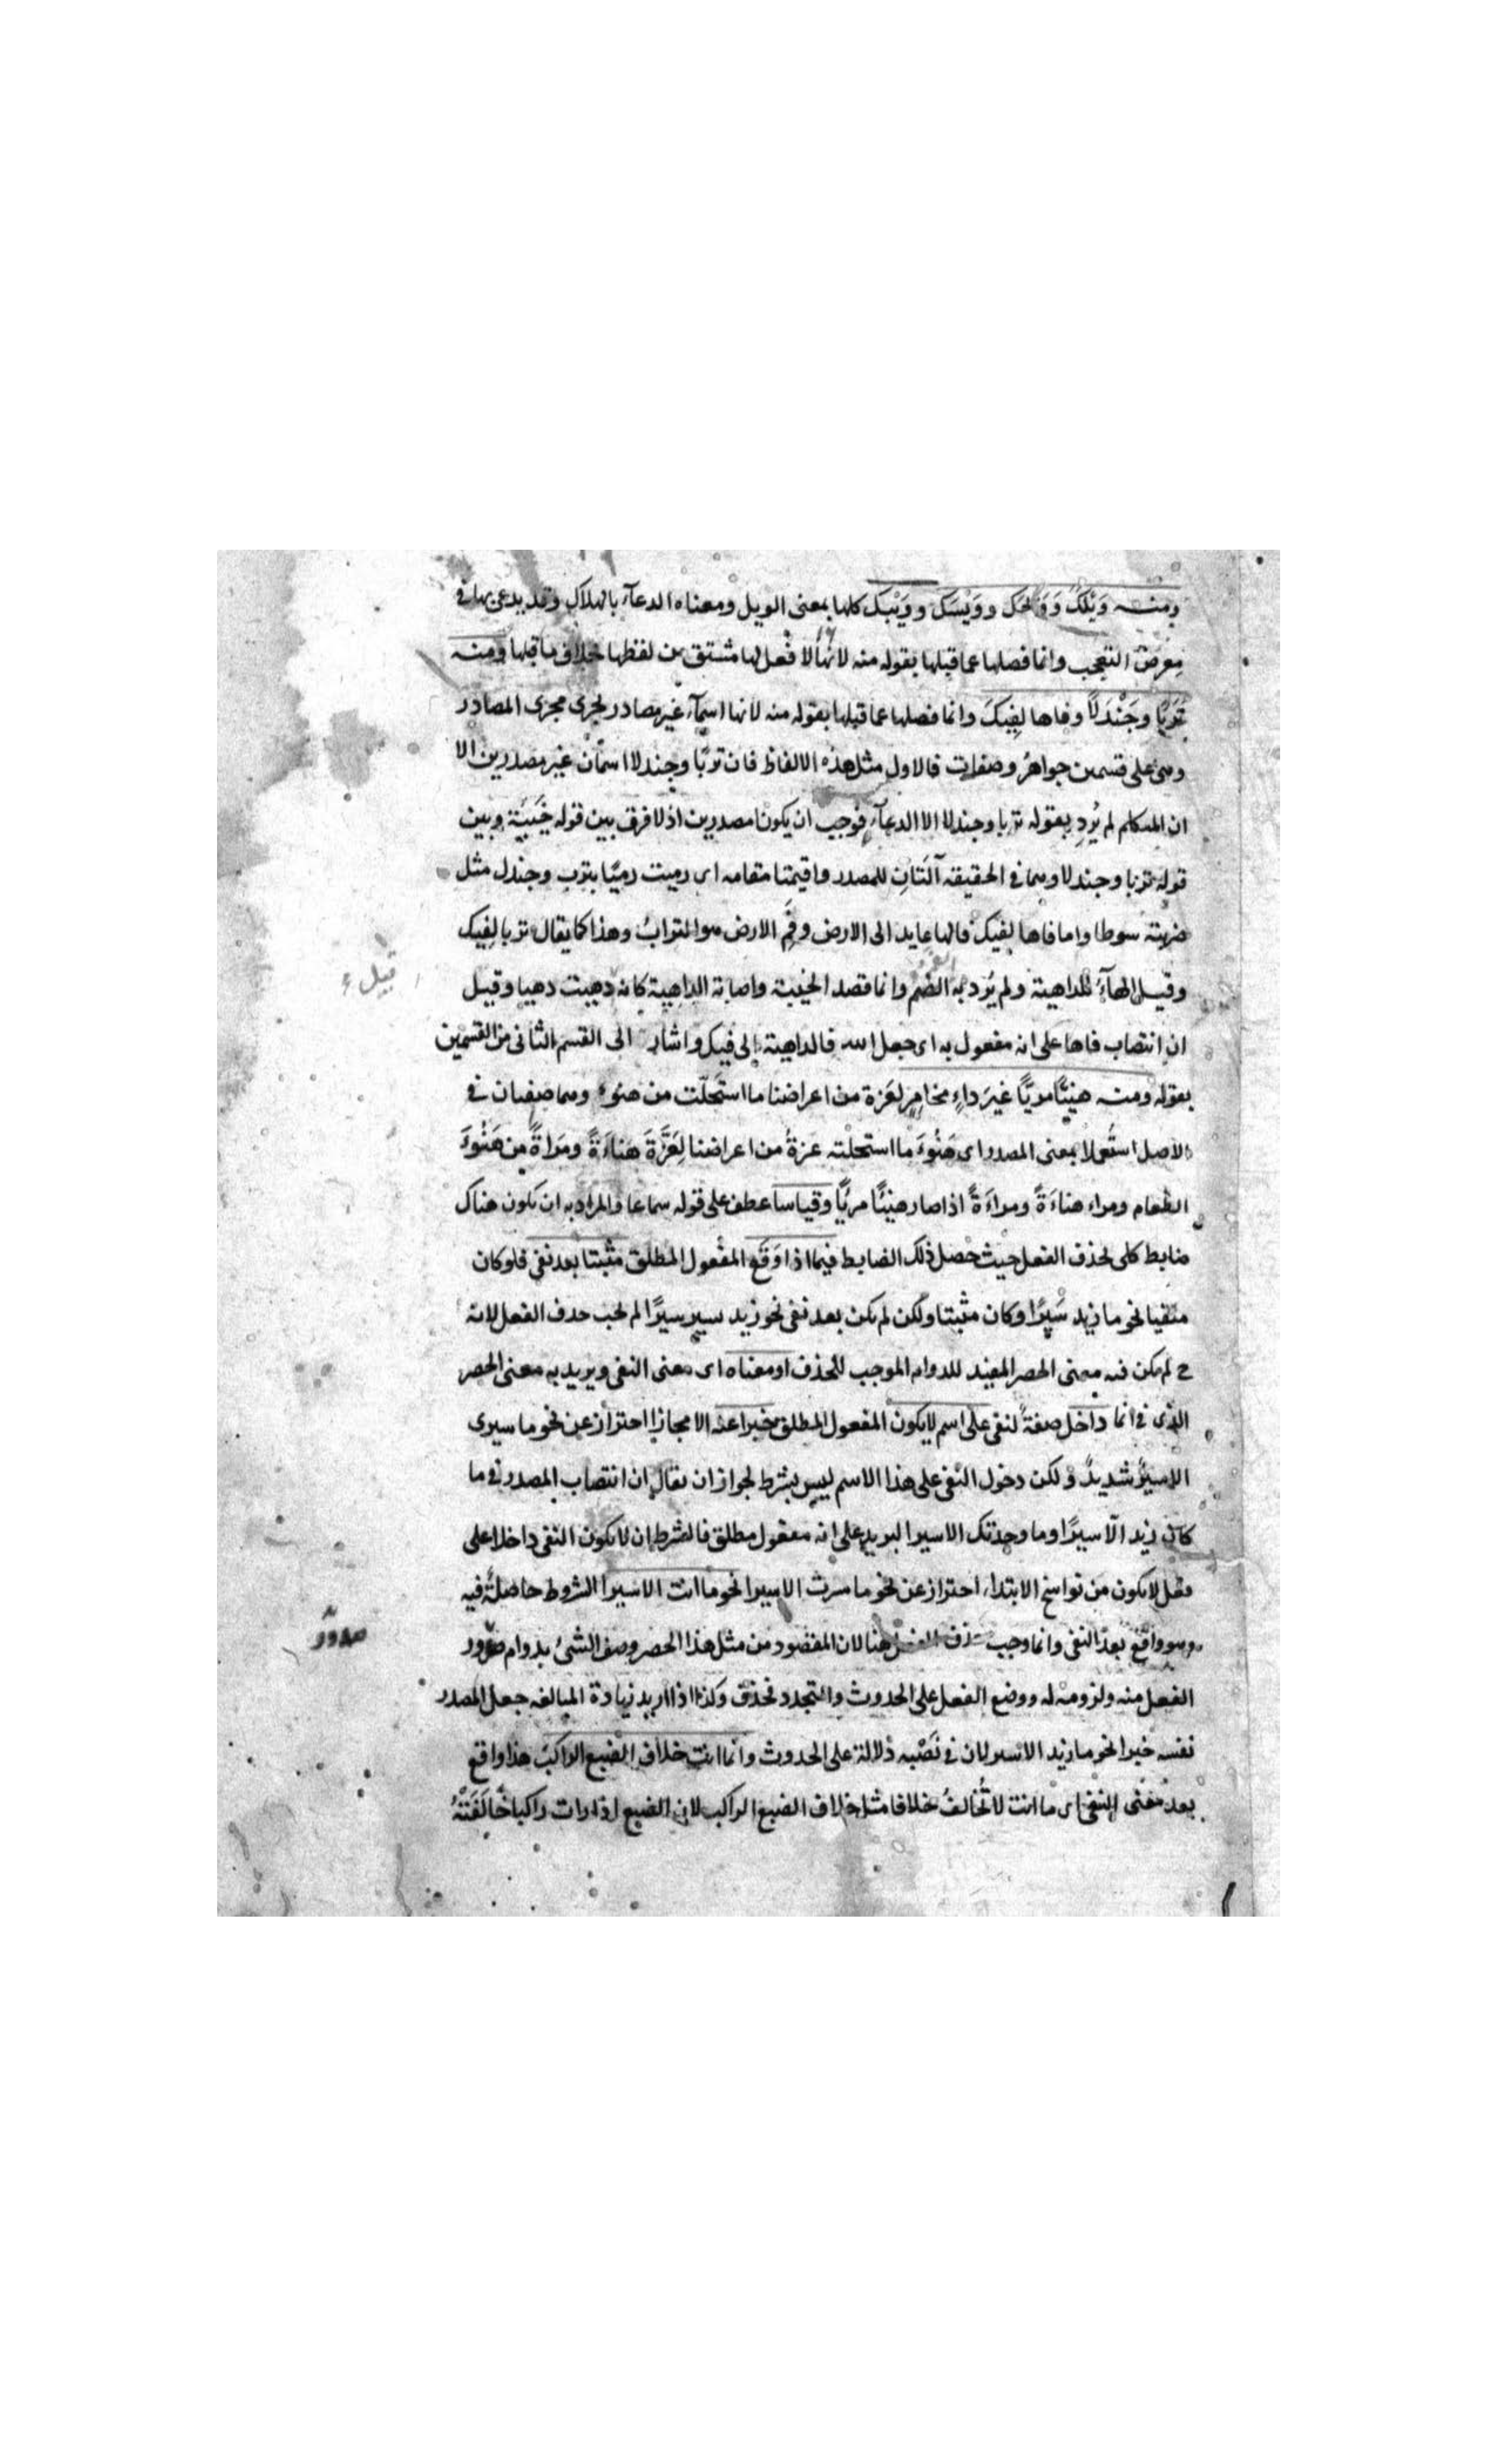 ومنه وَيْلَكَ وَوَيْحَكَ ووَيْسَكَ ووَيْبَكَ كلها بمعنى الويل ومعناه الدعآء بالهلاك وقد يدعى بها فى
معرض التعجب وانما فصلها عما قبلها بقوله منه لانها لا فعل لها مشتق من لفظها بخلاف ما قبلها ومنه
تُرْبًا وجَنْدَلاً وفاها لِفِيكَ وانما فصلها عما قبلها بقوله منه لانها اسمآء غير مصادر تجرى مجرى المصادر
وهى على قسمين جواهر وصفات فالاول مثل هذه الالفاظ فان تربًا وجندلا اسمان غير مصدرين الا
ان المتكلم لم يُرِد بقوله تربا وجندلا الا الدعآء فوجب ان يكونا مصدرين اذ لا فرق بين قوله خَيْبَة وبين
قوله تربا وجندلا وهما فى الحقيقه آلتان للمصدر واقيمتا مقامه اى رميت رميًا بترب وجندل مثل
ضربته سوطا واما فاها لفيك فالها عايد الى الارض وفم الارض هو التراب وهذا كما يقال تربا لفيك
وقيل الهآء للداهية ولم يُرد به الضم وانما قصد الخيبة واصابة الداهية كانه دهيت دهيا وقيل
ان انتصاب فاها على انه مفعول به اى جعل الله فا لداهية الى فيك واشار الى القسم الثانى من القسمين
بقوله ومنه هنيئًا مريًّا غيرَ داءٍ مخامِرٍ لعزة من اعراضنا ما استحلّت من هنوء وهما صفتان فى
الاصل استُعملا بمعنى المصدر اى هَنُوءَ ما استحلته عزةُ من اعراضنا لِعَزَّةَ هَناءَةً ومَراةً من هَنُوءَ
الطعام ومراء هناءَةً ومراءَةً اذا صار هنيئًا مريًّا وقياسا عطف على قوله سماعا والمراد به ان يكون هناك
ضابط كلى لحذف الفعل حيث حصل ذلك الضابط فيما اذا وَقَع المفعول المطلق مثبتا بعد نفى فلو كان
منفيا نحو ما زيد سَيرًا وكان مثبتا ولكن لم يكن بعد نفى نحو زيد سير سيرًا لم يجب حذف الفعل لانه
ح لم يكن فيه معنى الحصر المفيد للدوام الموجب للحذف او معناه اى معنى النفى ويريد به معنى الحصر
الذى فى انما داخل صفةً لنفى على اسم لا يكون المفعول المطلق خبرا عنه الا مجازا احتراز عن نحو ما سيرى
الا سيرٌ شديدٌ ولكن دخول النفى على هذا الاسم ليس بشرط لجواز ان يقال ان انتصاب المصدر فى ما
كان زيد الّا سيرًا وما وجدتك الا سير البريد على انه مفعول مطلق فالشرط ان لا يكون النفى داخلا على
فعل لا يكون من نواسخ الابتداء احتراز عن نحو ما سرت الا سيرا نحو ما انت الا سيرا الشروط حاصلةٌ فيه
وهو واقع بعد النفى وانما وجب حذف الفعل هنا لان المقصود من مثل هذا الحصر وصف الشئ بدوام صدور
صدور
الفعل منه ولزومه له ووضع الفعل على الحدوث والتجدد فحذف وكذا اذا اريد زيادة المبالغه جعل المصدر
نفسه خبرا نحو ما زيد الا سير لان فى نَصْبِه دلالة على الحدوث وانما انت خلاف الضبع الراكبَ هذا واقع
بعد معنى النفى اى ما انت لا تُخالفُ خلافا مثل خلاف الضبع الراكب لان الضبع اذا رات راكبا خالَفَتْهُ